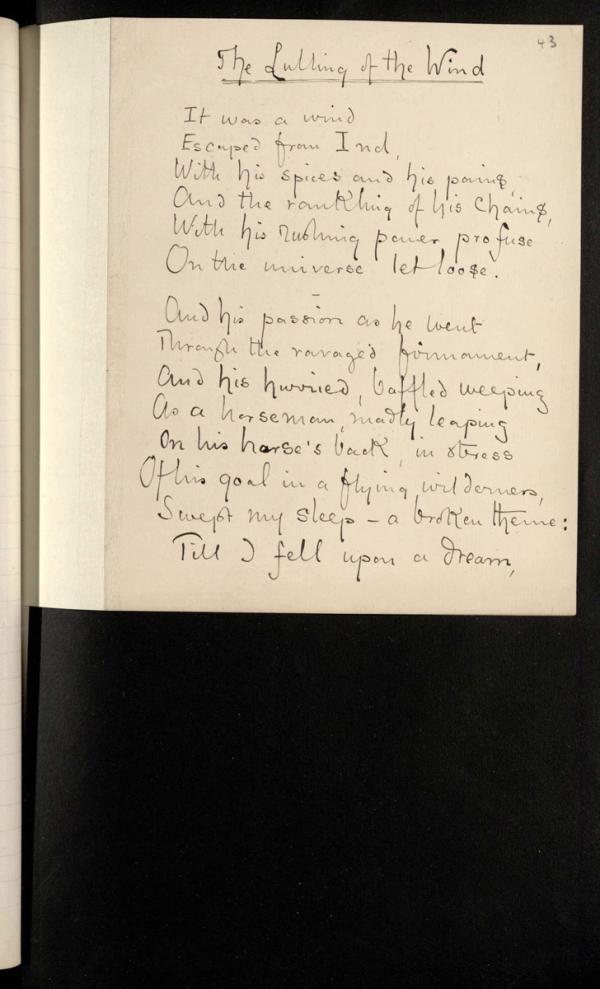 43
The Lulling of the Wind
It was a wind
Escaped from Ind,
With his spices and his pains,
And the rankling of his chains,
With his rushing power profuse
On the universe let loose.
And his passion as he went
Through the ravaged firmament,
And his hurried, baffled weeping
As a horseman, madly leaping
On his horse's back, in stress
Of his goal in a flying wilderness,
Swept my sleep – a broken theme:
Till I fell upon a dream,